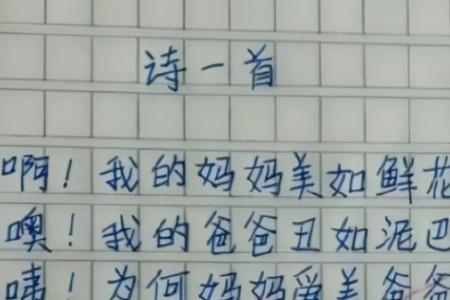 诗一首
啊！我的妈妈美如鲜花
噢！我的爸爸丑如泥巴
咦！为何妈妈爱美爸爸